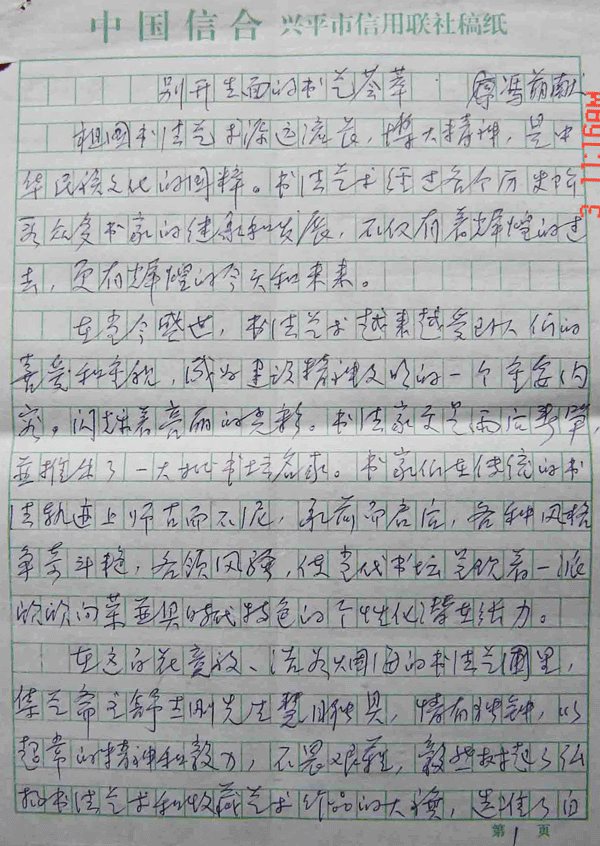 中国信合 兴平市信用联社稿纸
别开生面的书艺荟萃 冯萌献
祖国书法艺术源远流长，博大精神，是中
华民族文化的国粹。书法艺术经过各个历史阶
段众多书家的继承和发展，不仅有着辉煌的过
去，更有辉煌的今天和未来。
在当今盛世，书法艺术越来越受到人们的
喜爱和重视，成为建设精神文明的一个重要内
容。闪烁着亮丽的光彩。书法家更是雨后春笋，
并推出了一大批书坛名家。书家们在传统的书
法轨迹上师古而不泥，承前而启后，各种风格
争奇斗艳，各领风骚，使当代书坛呈现着一派
欣欣向荣并具时代特色的个性化潜在活力。
在这百花竞放、流光溢的书法艺圃里，
集艺斋主舒士刚先生慧眼独具，情有独钟，以
超常的精神和毅力，不畏艰难，毅然扛起了弘
扬书法艺术和收藏艺术作品的大旗，选准了自
第1页